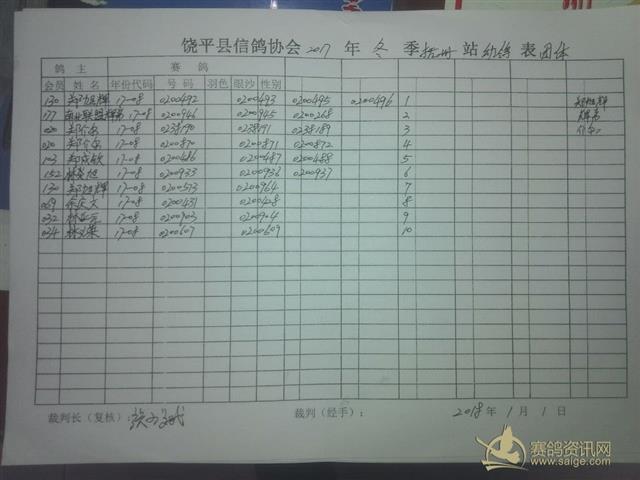 饶平县信鸽协会2017年冬季 站幼鸽表团体
鸽主 赛鸽
会员 姓名 年份代码 号码 羽色 眼沙 性别
130 郑旭辉 17-08 0200492 0200493 0200495 0200496 1 郑旭辉
177 17-08 0200946 0200945 0200268 2
020 郑介名 17-08 0238190 0238191 0238189 3
020 郑介名 17-08 0200870 0200871 0200872 4
103 郑成钦 17-08 0200486 0200487 0200488 5
152 17-08 0200933 0200936 0200937 6
130 郑旭辉 17-08 0200573 0200964 7
069 17-08 0200431 0200428 8
032 17-08 0200903 0200904 9
034 17-08 0200607 0200609 10
裁判长（复核）： 裁判（经手）： 2018年1月1日
赛鸽资讯网
www.saige.com